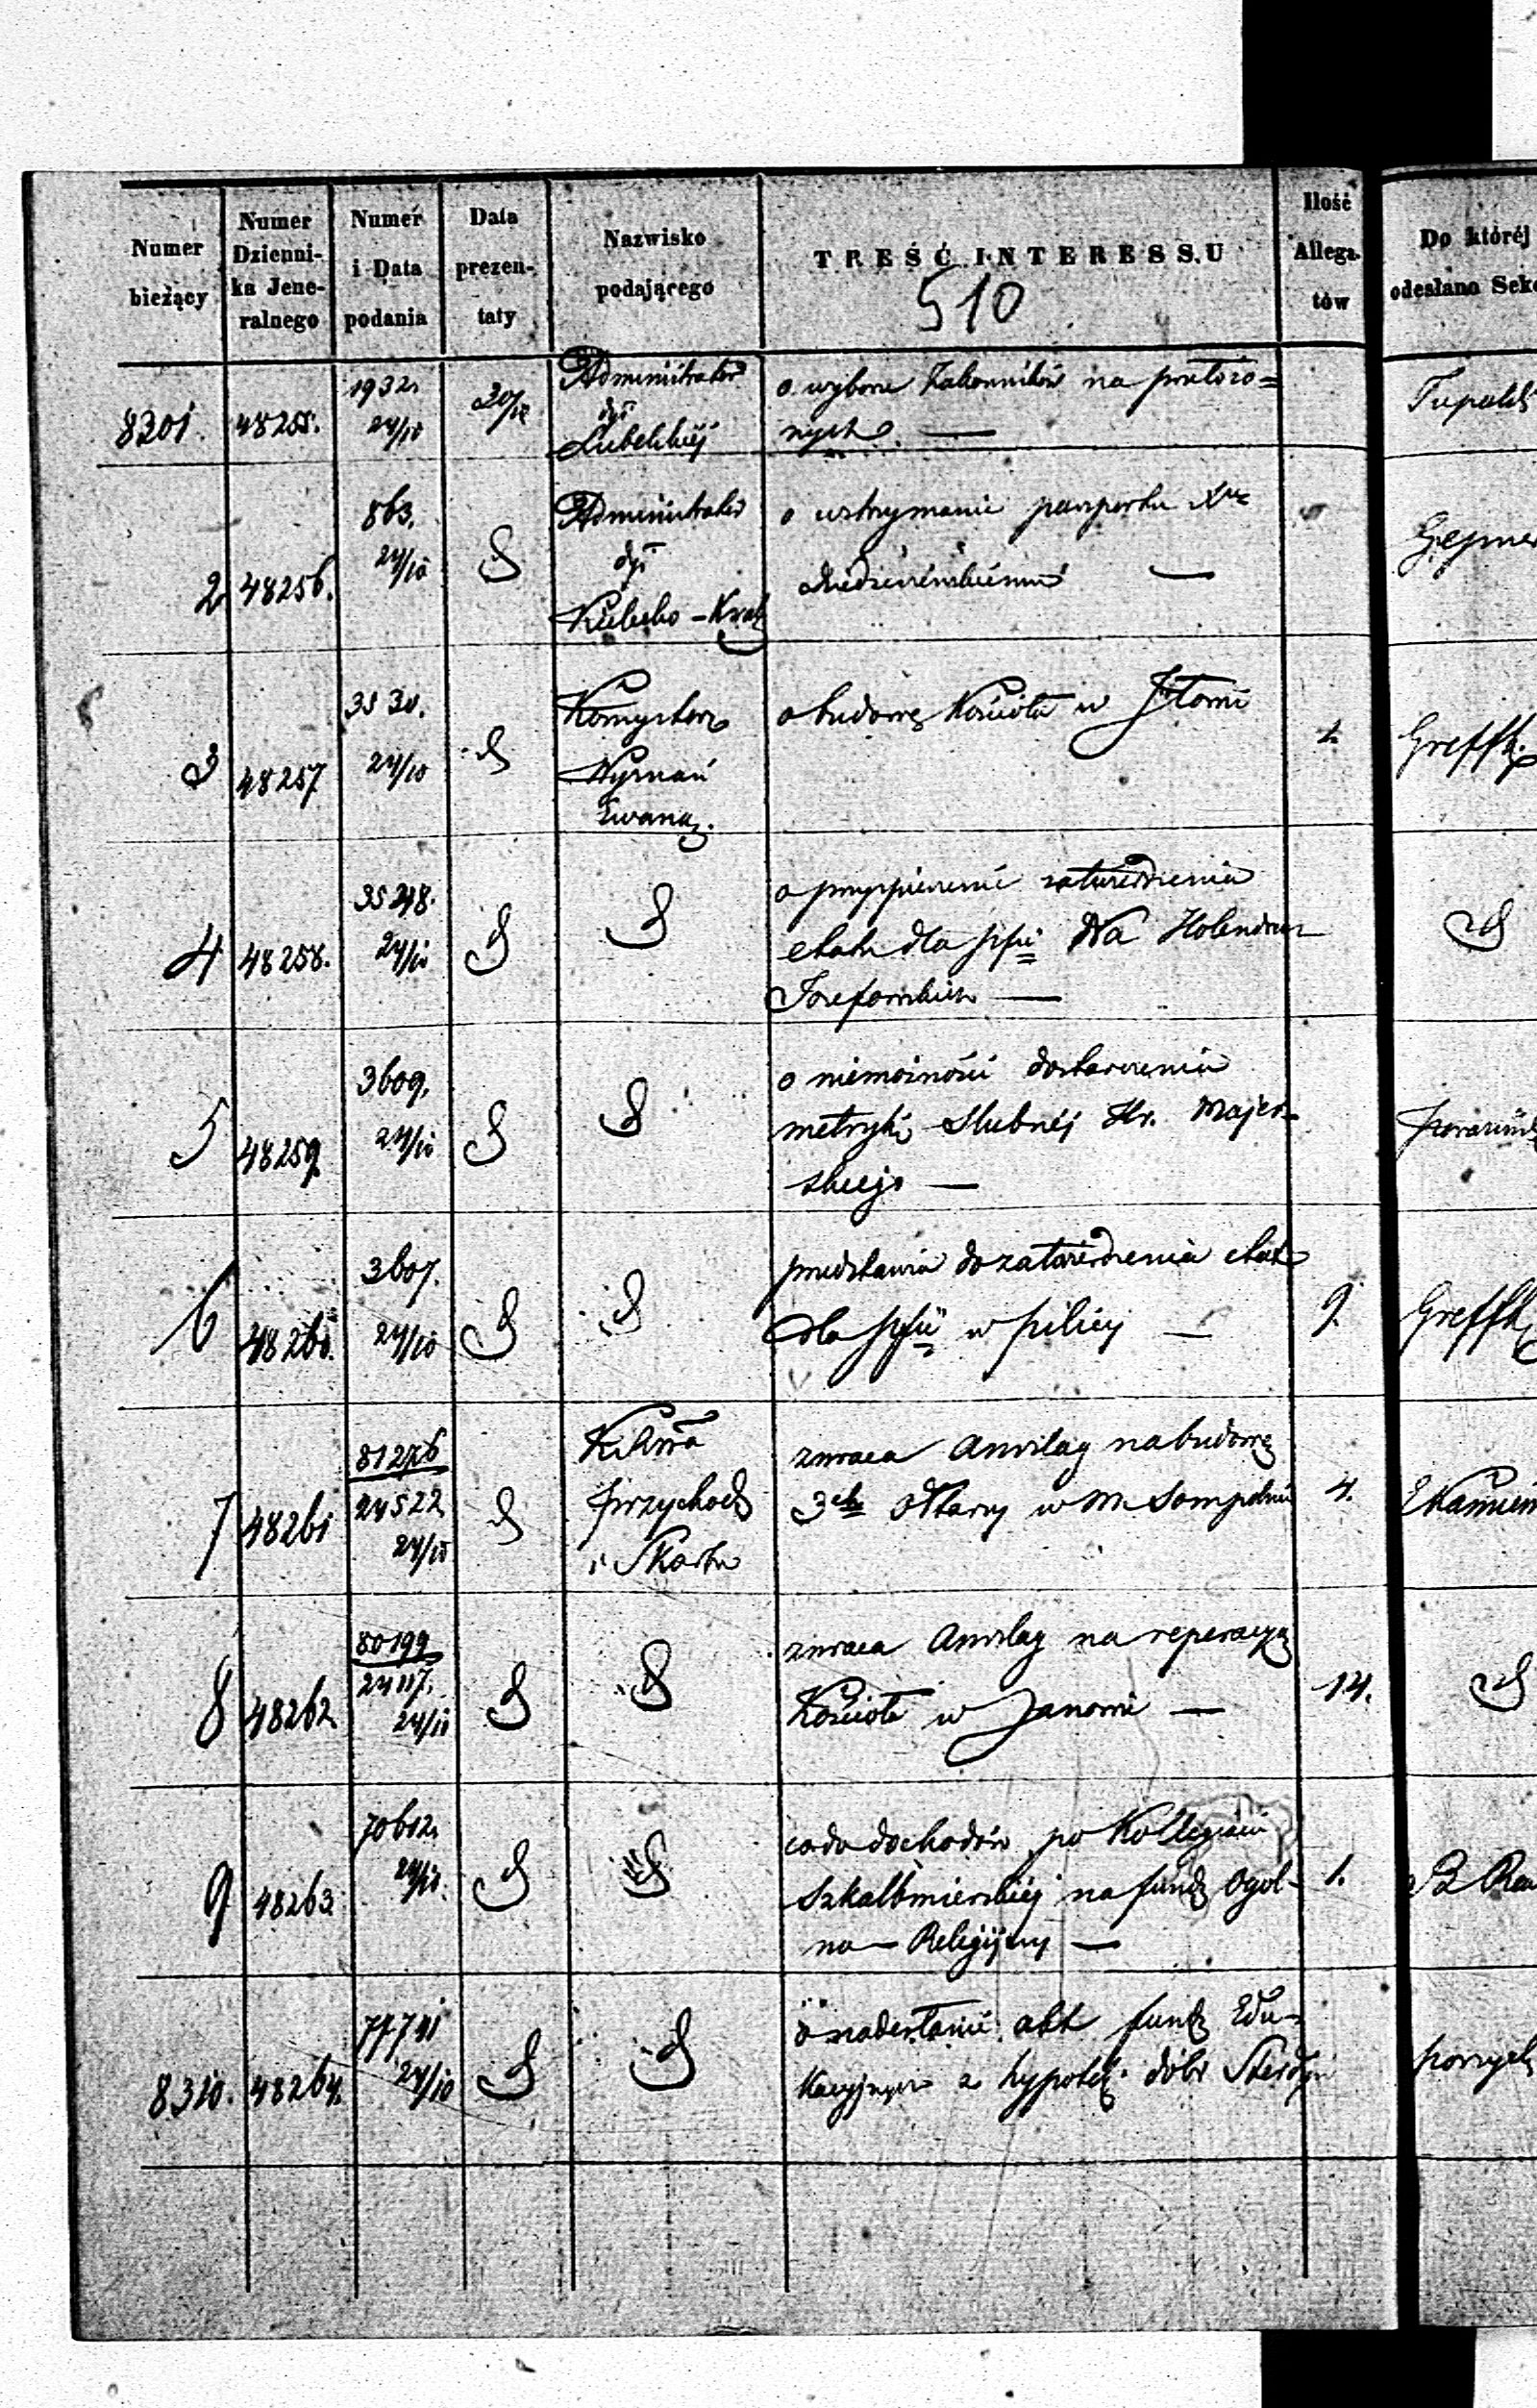 Numer bieżący
Numer Dzienni-ka Jene-ralnego
Numer i Data podania
Data prezen-taty
Nazwisko podającego
TREŚĆ INTERESSU
Ilość Allega-tów
Do któréj odesłano Sek
510
8301. 48255. 1932. 24/10 20/10 Administrator dyi Lubelskiéj
o wyborze Zakonników na przełożo=
nych. —
2 48256. 863. 24/10 Administrator dyi Kielecko-Krak
o wstrzymanie paszportu
—
3 48257 3530. 24/10 Konsystorz Wyznań Ewang.
o budowę Kościoła w Iłowie
Greff
4 48258. 3548. 24/10
o przyspieszenie zatwierdzenia
etatu dla Na Holendrach
Józefowskich —
5 48259 3609. 24/10
o niemożności dostarczenia
metryki Slubnéj Hr. Majew-
skiego —
6 48260. 3607. 24/10
przedstawia do zatwierdzenia etat
dla w pilicy — 9.
Greff
7 48261 81276 24522 24/10 K. Przychod i Skarbu
zwraca Anszlag na budowę
3ch Ołtarzy w M. Sompolnie 4.
8 48262 80199 24117. 24/10
zwraca Anszlag na reperacyą
Kościoła w Janowie — 14.
9 48263 70612. 24/10.
co do dochodów po Kollegiacie
Szkalbmierskiéj na fundz Ogol-
no — Religijny — 1.
8310. 48264. 77741 24/10
o nadesłanie akt fundz Edu-
kacyjnego z hypotek dóbr